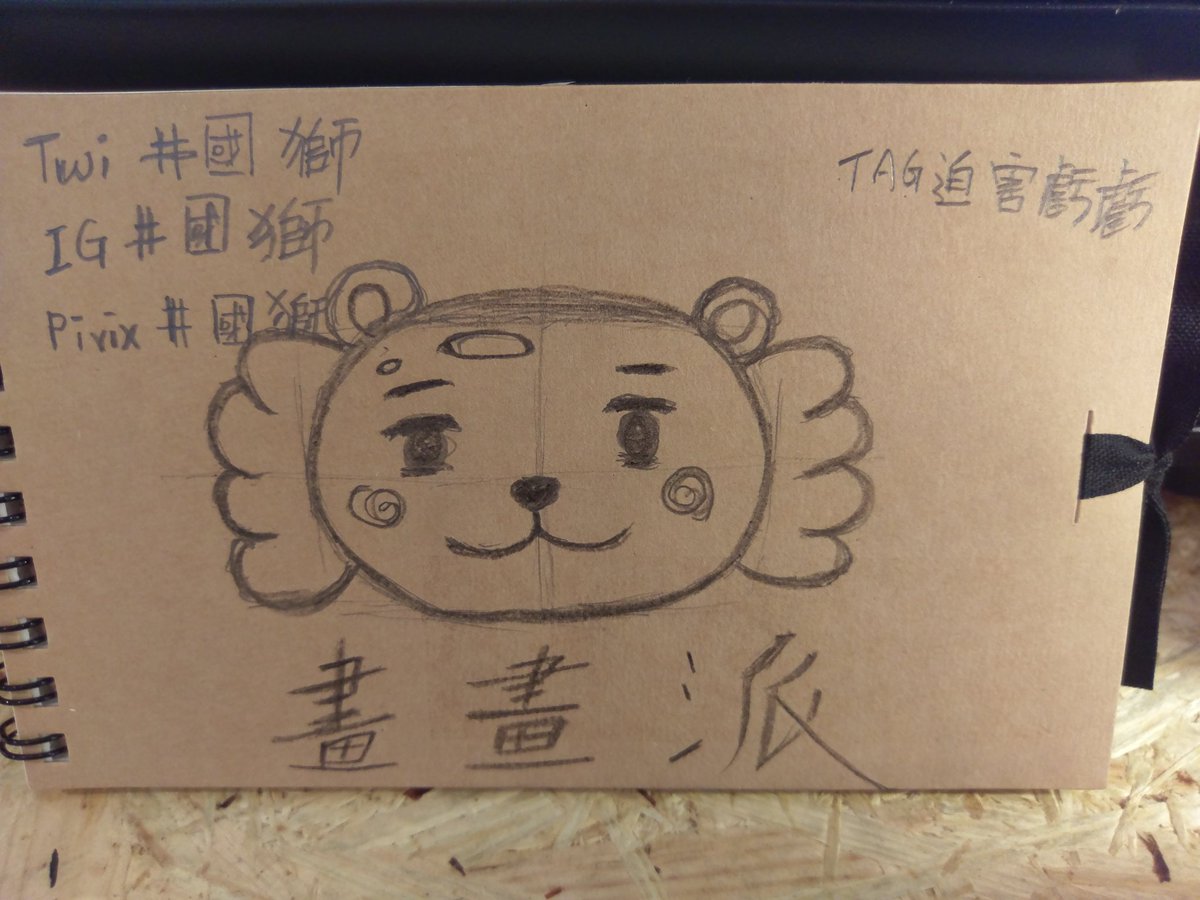 Twi #國獅
IG #國獅
Pivix #國獅
TAG迫害虧虧
畫畫派